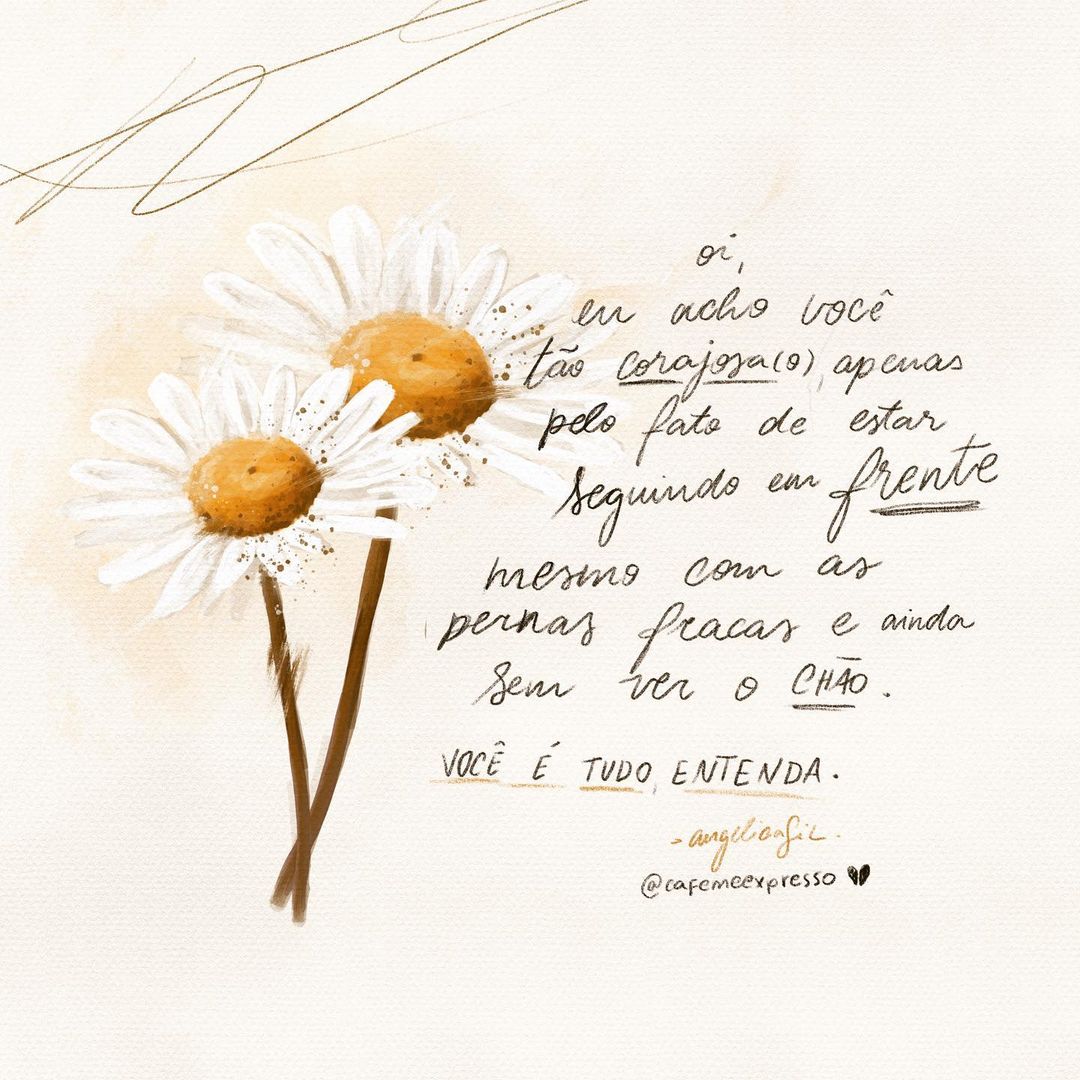 oi,
eu acho você
tão corajosa(o), apenas
pelo fato de estar
seguindo em frente
mesmo com as
pernas fracas e ainda
sem ver o CHÃO.
VOCÊ É TUDO, ENTENDA.
- angelicagil.
@cafemeexpresso